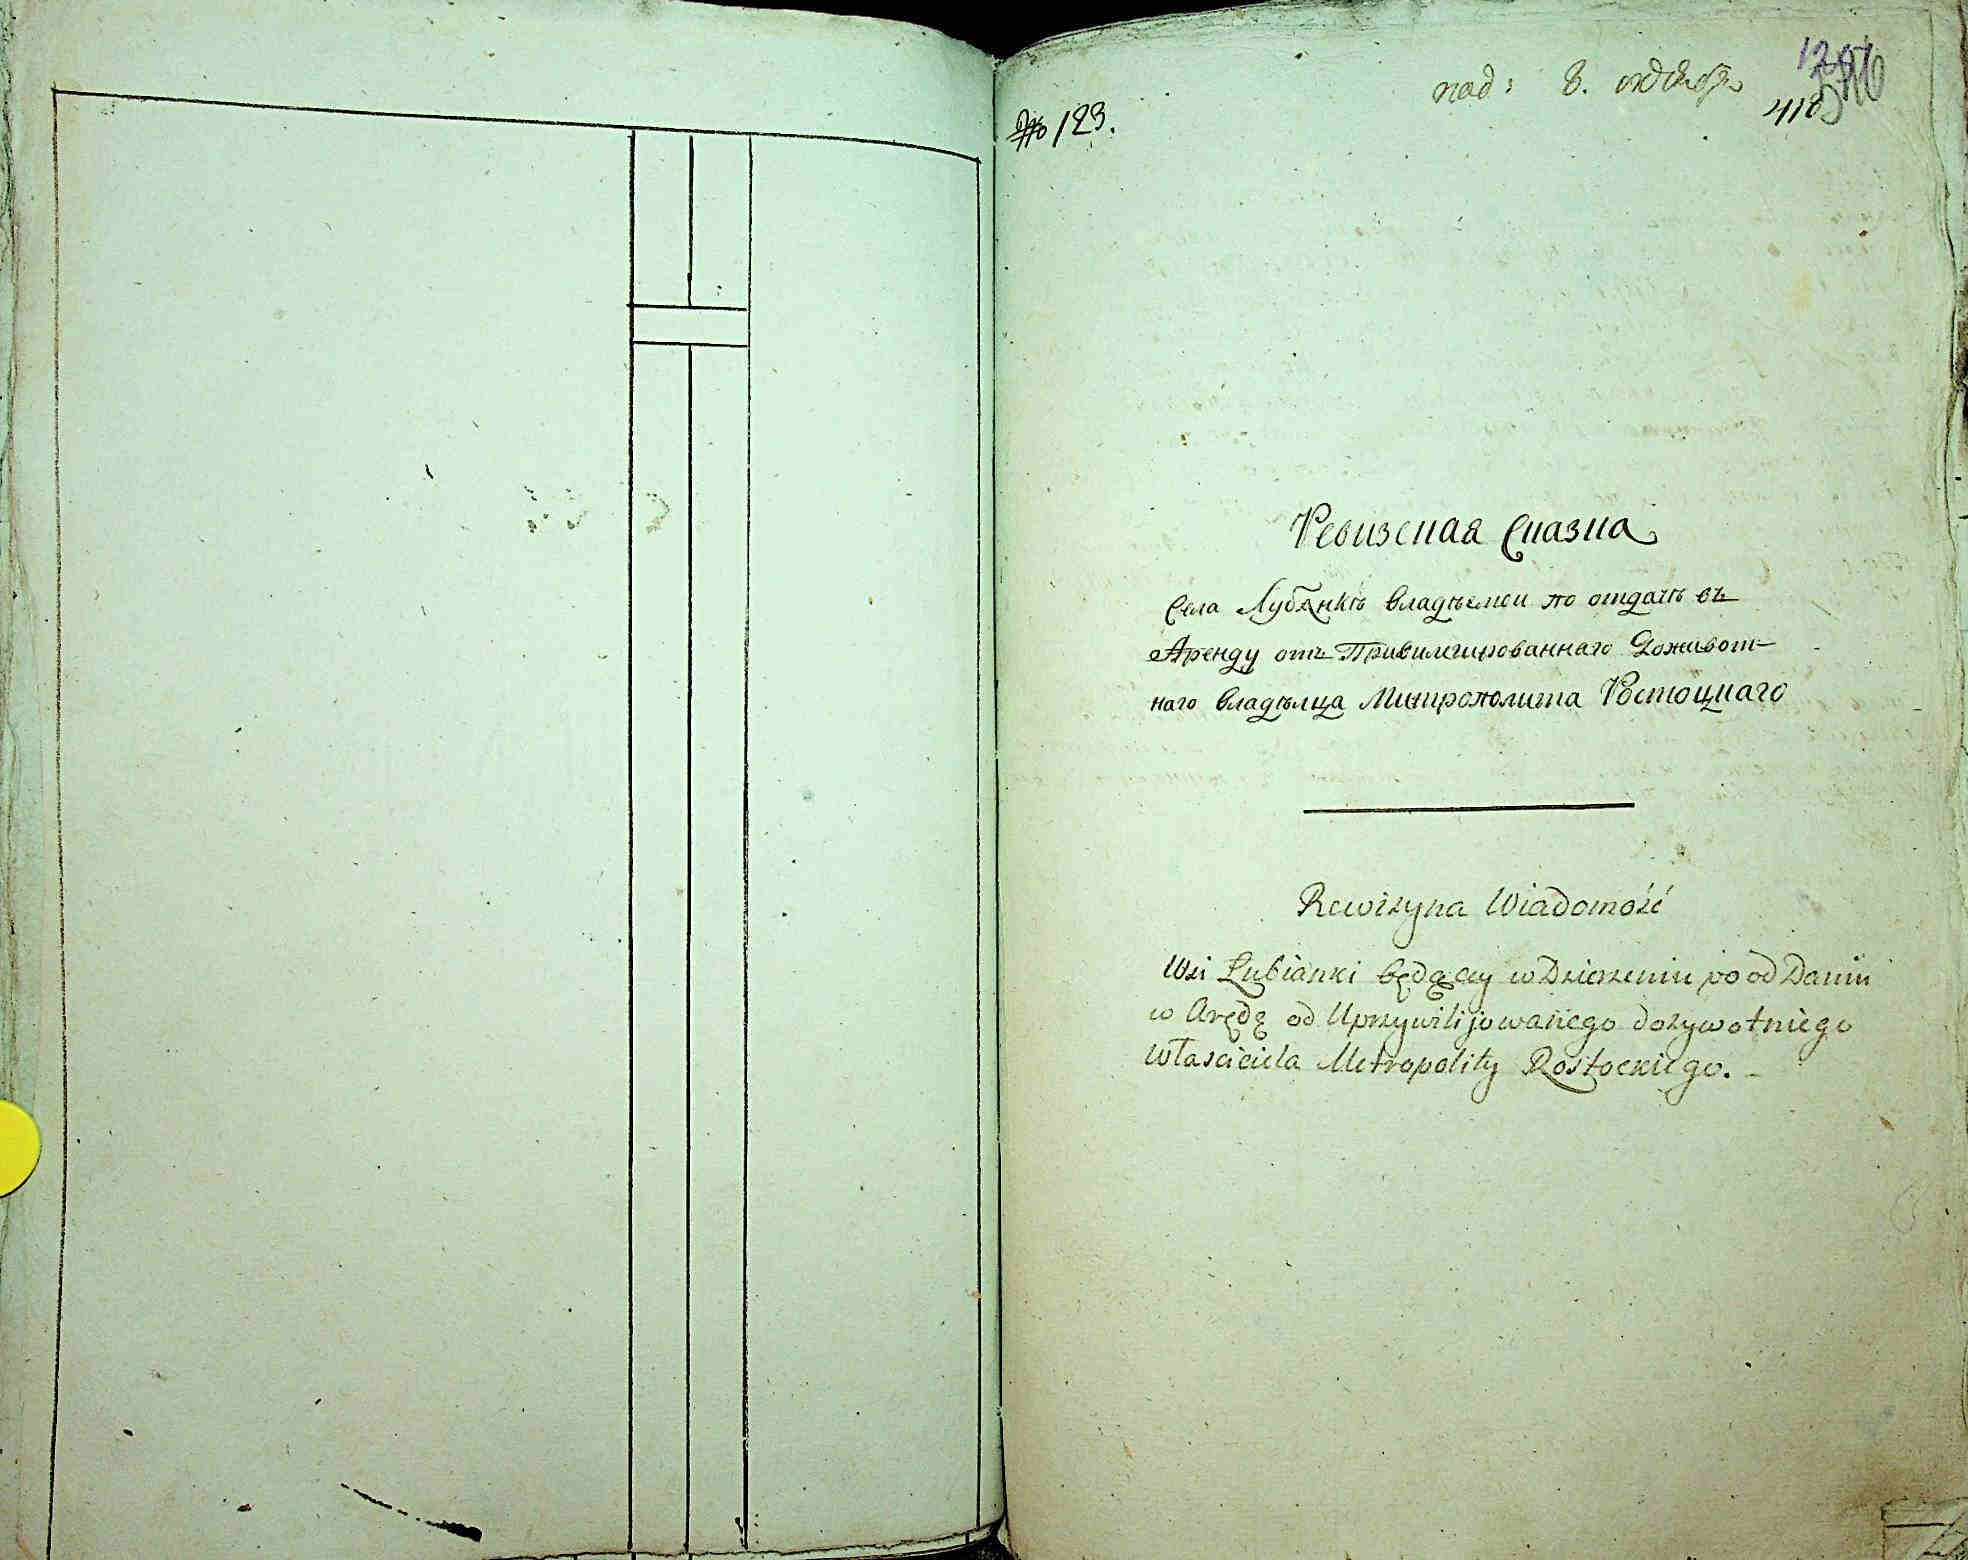 № 123.
под: 8. октября
418
Ревизская Сказка
Села Лубянкѣ владѣемой по отдачѣ въ
Аренду отъ Привилегированнаго Доживот-
наго владѣлца Митрополита Ростоцкаго
Rewizyna Wiadomość
Wsi Lubianki będącey w Dzierzeniu po od Daniu
w Arędę od Uprzywilijowanego dozywotniego
Własciciela Metropolity Rostockiego.